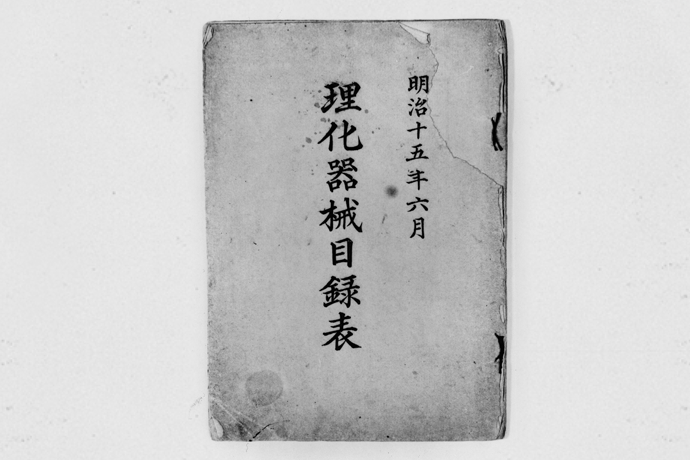 明治十五年六月
理化器械目録表